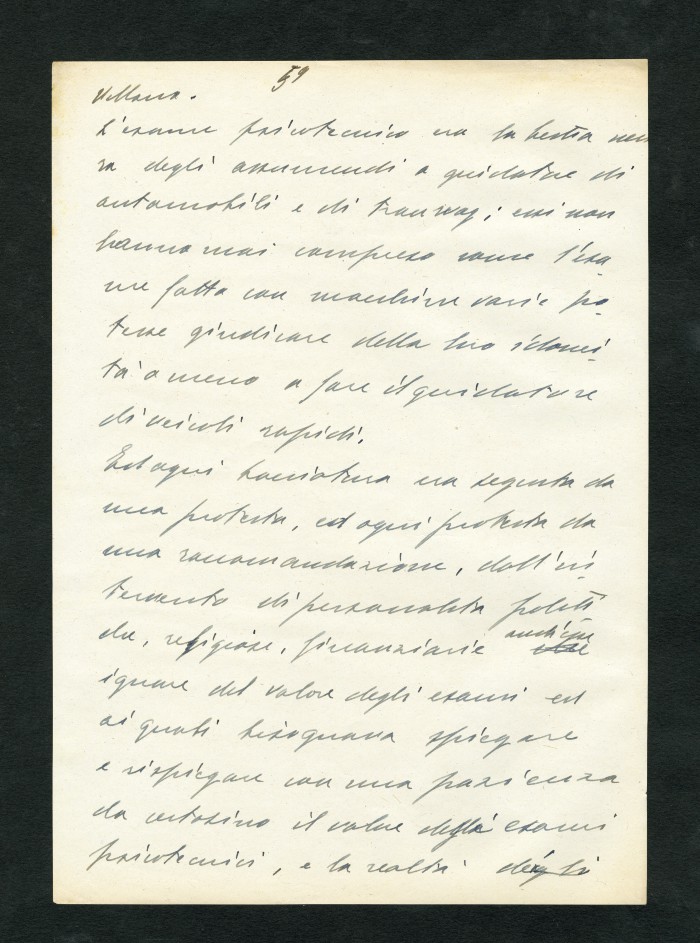 59
L'esame psicotecnico era la bestia ne
ra degli assumendi a guidatore di
automobili e di tranway; essi non
hanno mai compreso come l'esa
me fatto con macchine varie po
tesse giudicare della loro idonei
tà o meno a fare il guidatore
di veicoli rapidi.
Ed ogni bocciatura era seguita da
una protesta, ed ogni protesta da
una raccomandazione, dall'in
tervento di personalità politi
che, religiose, finanziarie
ignare del valore degli esami ed
ai quali bisognava spiegare
e rispiegare con una pazienza
da certosino il valore degli esami
psicotecnici, e la realtà degli